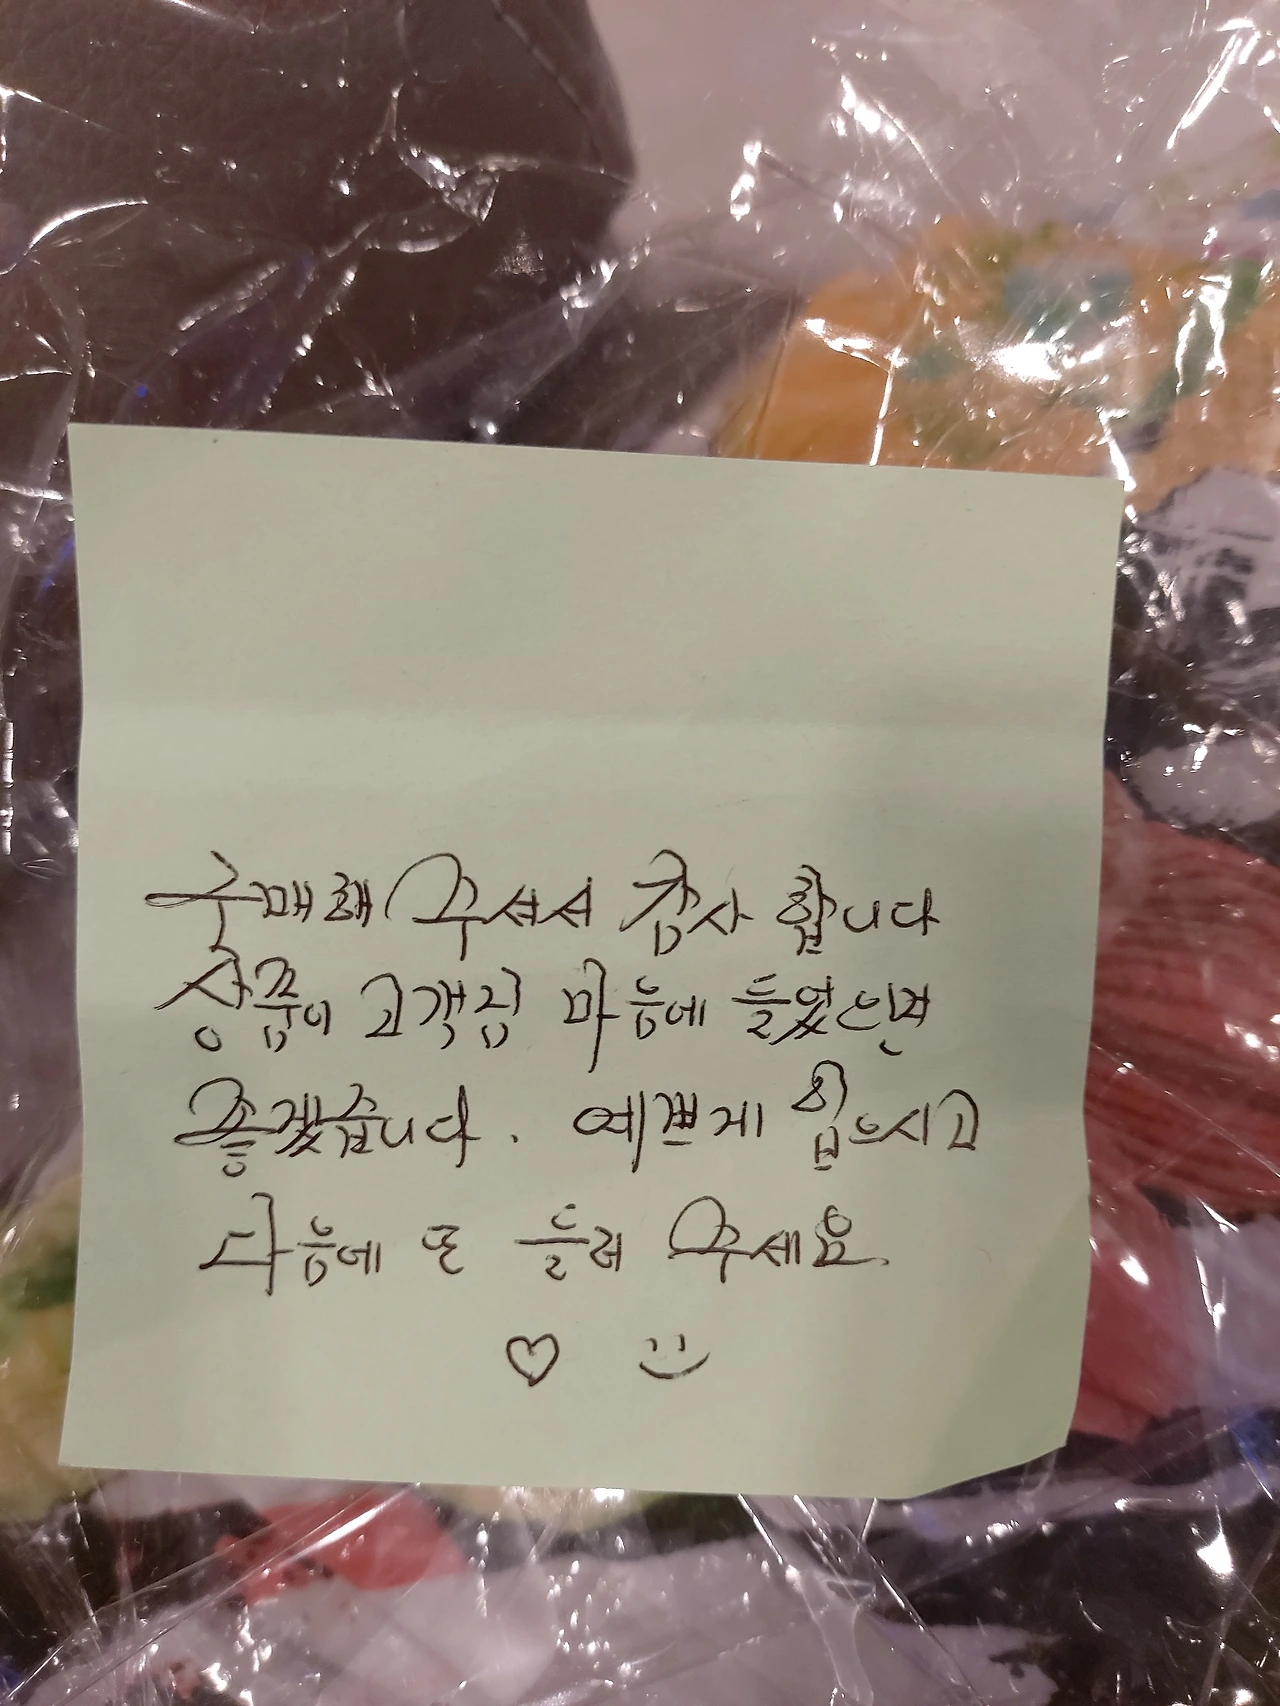 구매해 주셔서 감사 합니다
상품이 고객님 마음에 들었으면
좋겠습니다. 예쁘게 입으시고
다음에 또 들려 주세요.
♡ :)